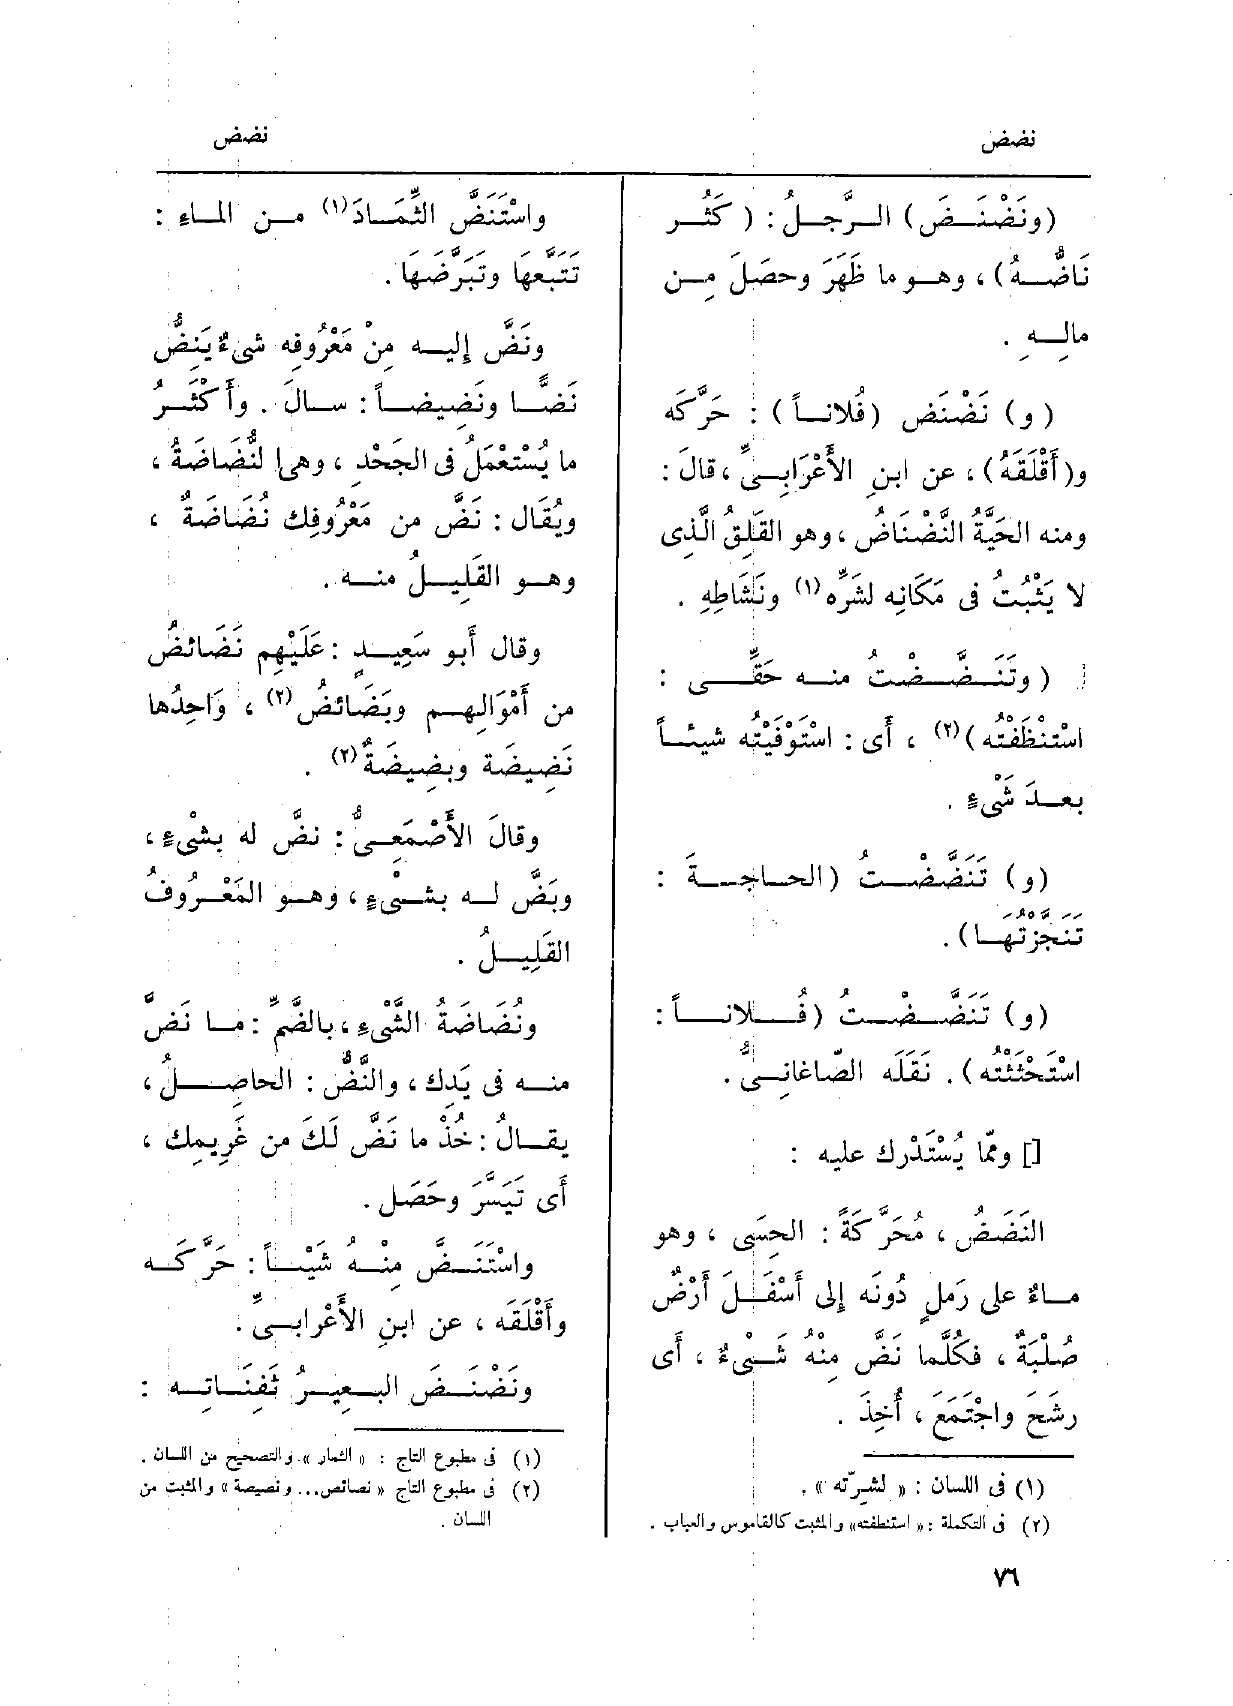 نضض
نضض
(ونَضْنَـضَ) الـرَّجـلُ : ( كَثُـر
نَاضُّـهُ) ، وهـو ما ظَهَرَ وحصَلَ مِـن
مالِـهِ .
( و) نَضْنَض (فُلاناً) : حَرَّكَه
و(أَقْلَقَهُ) ، عن ابنِ الأَعْرَابِـىِّ ، قالَ :
ومنه الحَيَّةُ النَّضْناضُ ، وهو القَلِقُ الَّذِى
لا يَثْبُتُ فى مَكَانِه لشَرِّه (١) ونَشَاطِهِ .
( وتَنَضَّـضْـتُ منـه حَقِّـى :
اسْتَنْظَفْتُه )(٢) ، أَى : اسْتَوْفَيْتُه شيئـاً
بعـدَ شَىْءٍ .
(و) تَنَضَّضْـتُ (الحـاجـةَ :
تَنَجَّزْتُهـا) .
(و) تَنَضَّـضْـتُ (فُـلانـاً :
اسْتَحْثَثْتُه ) . نَقَلَه الصّاغانِـىُّ .
[] وممّا يُسْتَدْرك عليه :
النَضَضُ ، مُحَرَّكَةً : الحِسْى ، وهو
مـاءٌ على رَمْلٍ دُونَه إلى أَسْفَـلَ أَرْضٌ
صُلْبَةٌ ، فكُلَّما نَضَّ مِنْهُ شَـىْءٌ ، أَى
رشَحَ واجْتَمَعَ ، أُخِذَ .
(١) فى اللسان : « لشِرّته » .
(٢) فى التكملة : « استنطفته» والمثبت كالقاموس والعباب .
واسْتَنَضَّ الثِّمَـادَ(١) مـن المـاءِ :
تَتَبَّعَها وتَبَرَّضَهَا .
ونَضَّ إليـه مِنْ مَعْرُوفِه شىءٌ يَنِضُّ
نَضًّـا ونَضِيضـاً : سـالَ . وأَكْثَـرُ
ما يُسْتَعْمَلُ فى الجَحْدِ ، وهى النُّضَاضَةُ ،
ويُقَال : نَضَّ من مَعْرُوفِك نُضَاضَةٌ ،
وهـو القَلِيـلُ منـه .
وقال أَبو سَعِيـدٍ : عَلَيْهِم نَضَائضُ
من أَمْوَالِهِـم وبَضَائضُ(٢) ، وَاحِدُها
نَضِيضَة وبَضِيضَةٌ(٢) .
وقالَ الأَصْمَعِـىُّ : نضَّ له بشْىءٍ ،
وبَضَّ لـه بشـىْءٍ ، وهـو المَعْـرُوفُ
القَلِيـلُ .
ونُضَاضَةُ الشَّىْءِ ، بالضَّمِّ : مـا نَضَّ
منـه فى يَدِك ، والنَّضُّ : الحاصِـلُ ،
يقـالُ : خُذْ ما نَضَّ لَكَ من غَرِيمِك ،
أَى تَيَسَّرَ وحَصَل .
واسْتَنَـضَّ مِنْـهُ شَيْئـاً : حَرَّكَـه
وأَقْلَقَه ، عن ابنِ الأَعْرابـىِّ .
ونَضْنَـضَ البـعِيـرُ ثَفِنـاتِـه :
(١) فى مطبوع التاج : « الثمار » . والتصحيح من اللسان .
(٢) فى مطبوع التاج « نصائص... ونصيصة » والمثبت من
اللسان .
٧٦